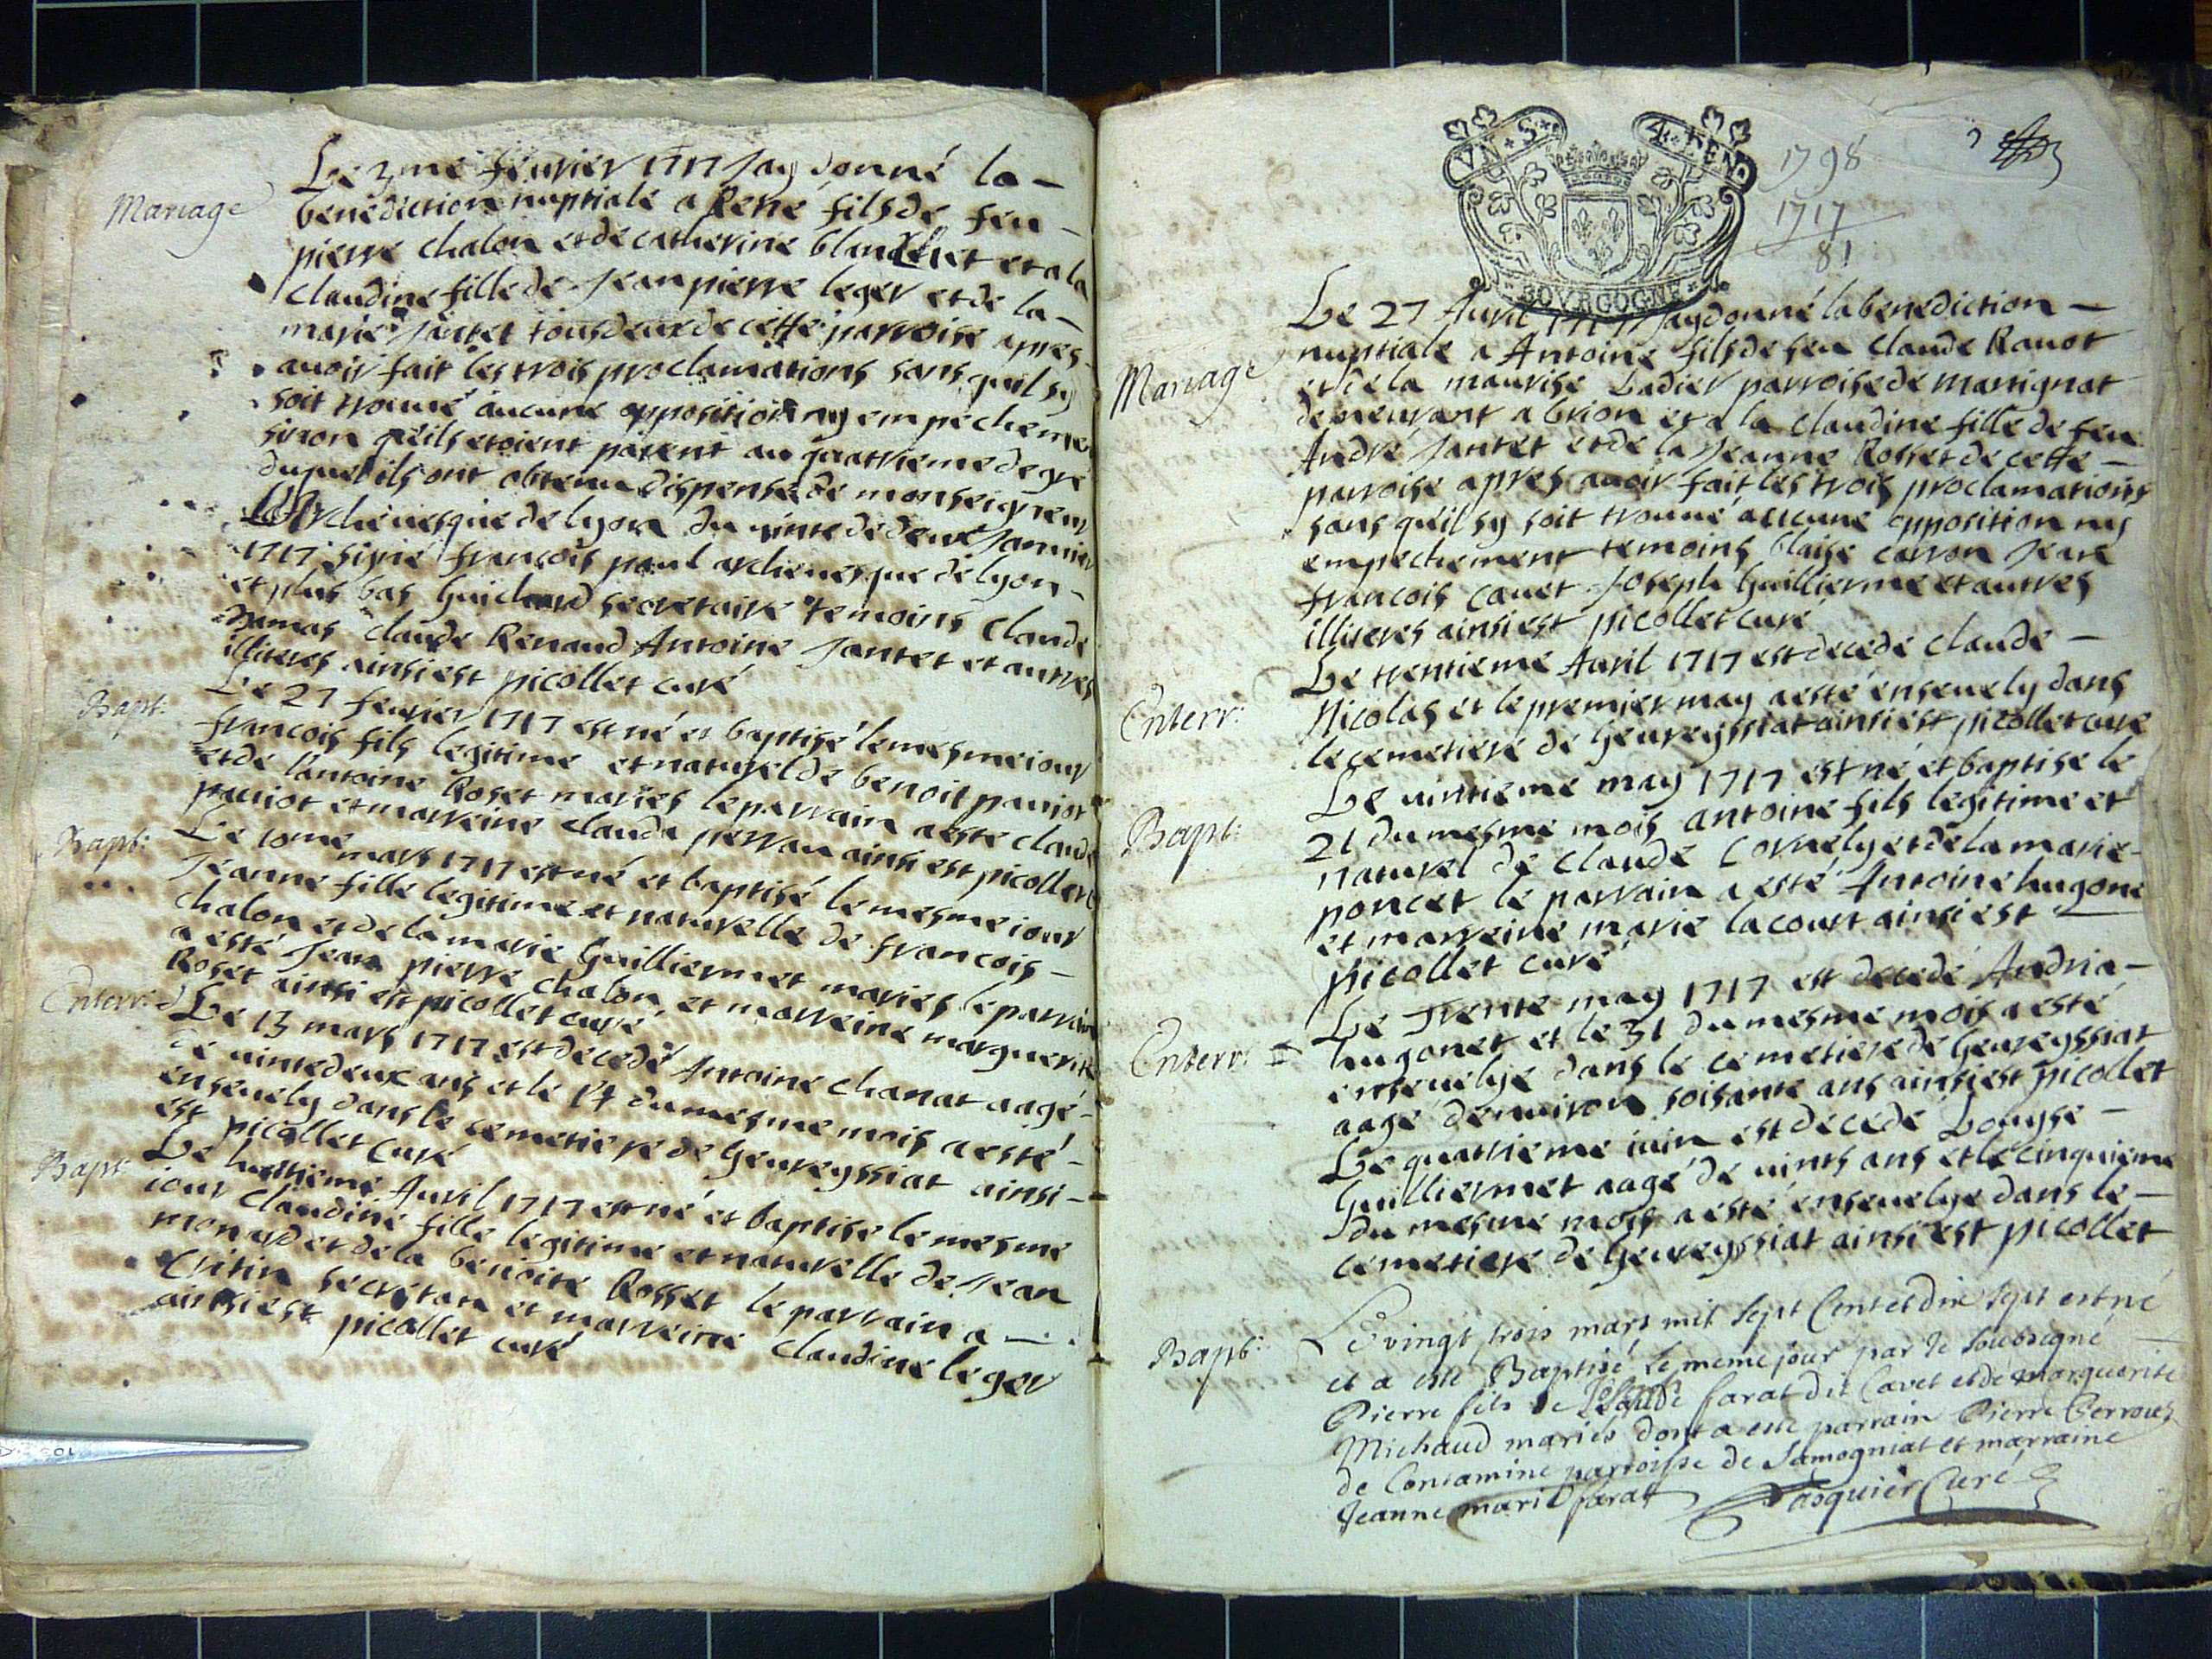 Mariage
Le 3me feurier 1717 Jay donné la –
benediction nuptiale a René fils de feu –
pierre chalon et de catherine blanchet et a la
claudine fille de Jean pierre leger et de la –
marie Jantet tous deux de cette parroise apres
auoir fait les trois proclamations sans quil sy
soit trouué aucune opposition ny empecheme
sinon qu'ils etoient parent au quatrieme degré
duquel ils ont obtenu dispense de monseigneur
L'Archeuesque de lyon du vinte dedeux Januier
1717 signé françois paul archeuesque de lyon –
et plus bas Guichard secretaire temoins Claude
Damas claude Renaud Antoine Jantet et autres
illiteres ainsi est picollet curé
Bapt:
Le 27 feurier 1717 est né et baptisé le mesme iour
francois fils legitime et naturel de benoit pauiot
et de l'antoine Roset mariés le parrain a esté claude
pauiot et marreine clauda perrau ainsi est picollet c
Bapt:
Le 10me mars 1717 est né et baptisé le mesme iour
Jeanne fille legitime et naturelle de francois –
chalon et de la marie Guilliermet mariés le parrain
a esté Jean pierre chalon et marreine marguerite
Roset ainsi est picollet curé
Enterr:
Le 13 mars 1717 est decedé Antoine chanat aagé –
de uintedeux ans et le 14 du mesme mois a esté –
enseuely dans le cemetiere de Geureyssiat ainsi –
est picollet curé
Bapt
Le huitieme Auril 1717 est né et baptise le mesme
iour claudine fille legitime et naturelle de Jean
monard et de la benoite Rosset le parrain a –
Critin secretan et marreine claudine leger
ainsi est picollet curé
VN S 4 DEND
BOVRGOGNE
1798
1717
81
Mariage
Le 27 Auril 1717 Jay donné la benediction –
nuptiale a Antoine fils de feu claude Rauot
et de la maurise Badier parroise de martignat
demeurant a brion et a la claudine fille de feu
André Jantet et de la Jeanne Rosset de cette –
parroise apres auoir fait les trois proclamations
sans qu'il sy soit trouué aucune opposition ny
empechement temoins blaise carron Jean
francois cauet Joseph Guillierme et autres
illiteres ainsi est picollet curé
Enterr:
Le trentieme Auril 1717 est decedé claude –
Nicolas et le premier may a esté enseuely dans
le cemetiere de Geureyssiat ainsi est picollet curé
Bapt:
Le vintieme may 1717 est né et baptise le
21 du mesme mois antoine fils legitime et
naturel de claude Cornely et de la marie –
poncet le parrain a esté Antoine hugone
et marreine marie lacourt ainsi est
picollet curé
Enterr:
Le Trente may 1717 est decedé Andria –
hugonet et le 31 du mesme mois a esté
enseuelye dans le cemetiere de Geureyssiat
aagé denuiron soisante ans ainsi est picollet
Le quatrieme iuin est decedé Louyse –
Guilliermet aagé de uints ans et le cinquieme
du mesme mois a esté enseuelye dans le –
cemetiere de Geureyssiat ainsi est picollet
Bapt:
Le vingt trois mars mil sept Cent et dix sept est né
et a este Baptisé le meme jour par Je soubsigné –
Pierre fils de Claude farat dit Cavet et de marguerite
Michaud mariés dont a este parrain Pierre Perroux
de Condamine parroisse de Samogniat et marraine
Jeanne marie farat Pasquier Curé